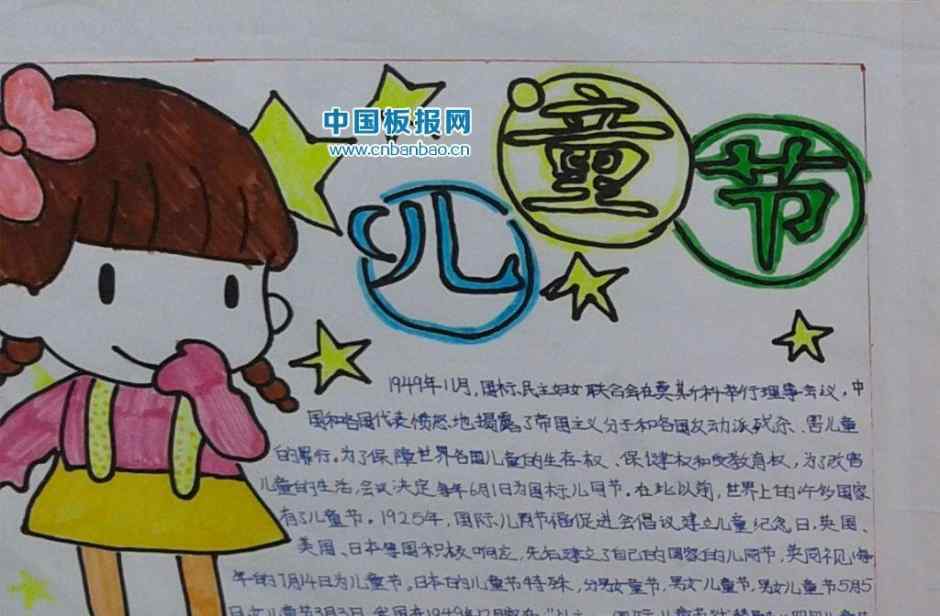 中国板报网
www.cnbanbao.cn
儿童节
1949年11月,国际民主妇女联合会在莫斯科举行理事会议,中
国和各国代表愤怒地揭露了帝国主义分子和各国反动派残杀、害儿童
的罪行。为了保障世界各国儿童的生存权、保健权和受教育权,为了改善
儿童的生活,会议决定每年6月1日为国际儿同节。在此以前,世界上的许多国家
有了儿童节。1925年,国际儿童节福促进会倡议建立儿童纪念日,英国、
美国、日本等国积极响应,先后建立了自己的国家的儿同节,英国规
年的7月14日为儿童节。日本的儿童节特殊,分男女童节,男女儿童节,男女儿童节5月5
日女儿童节3月3日